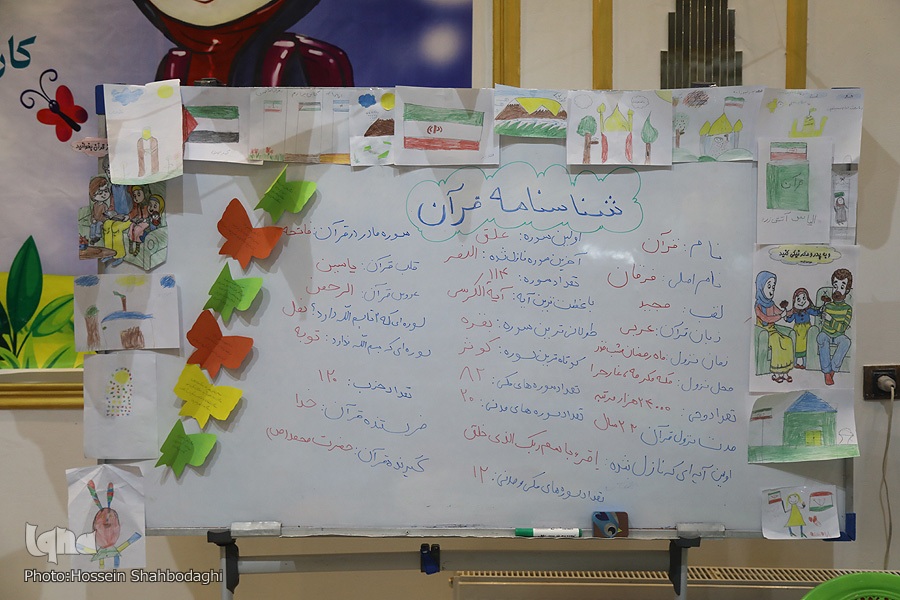 شناسنامه قرآن
نام: قرآن
نام اصلی: فرقان
لقب: مجید
زبان قرآن: عربی
زمان نزول: ماه رمضان شب قدر
محل نزول: مکه مکرمه غار حرا
تعداد وحی: ۲۴۰۰۰ هزار مرتبه
مدت نزول قرآن ۲۲ سال
اولین آیه ای که نازل شده: اقرء باسم ربک الذی خلق
اولین سوره: علق
آخرین سوره نازل شده: النصر
تعداد سوره: ۱۱۴
با عظمت ترین آیه: آیه الکرسی
طولانی ترین سوره: بقره
کوتاه ترین سوره: کوثر
تعداد سوره های مکی: ۸۲
تعداد سوره های مدنی: ۲۰
تعداد سوره های مکی و مدنی: ۱۲
سوره مادر در قرآن: فاتحه
قلب قرآن: یاسین
عروس قرآن: الرحمن
سوره ای که ۲ تا بسم الله دارد؟ نمل
سوره ای که بسم الله ندارد: توبه
تعداد حزب: ۱۲۰
فرستنده قرآن: خدا
گیرنده قرآن: حضرت محمد (ص)
قرآن
و به پدر و مادر نیکی کنید
iqna
Photo:Hossein Shahbodaghi